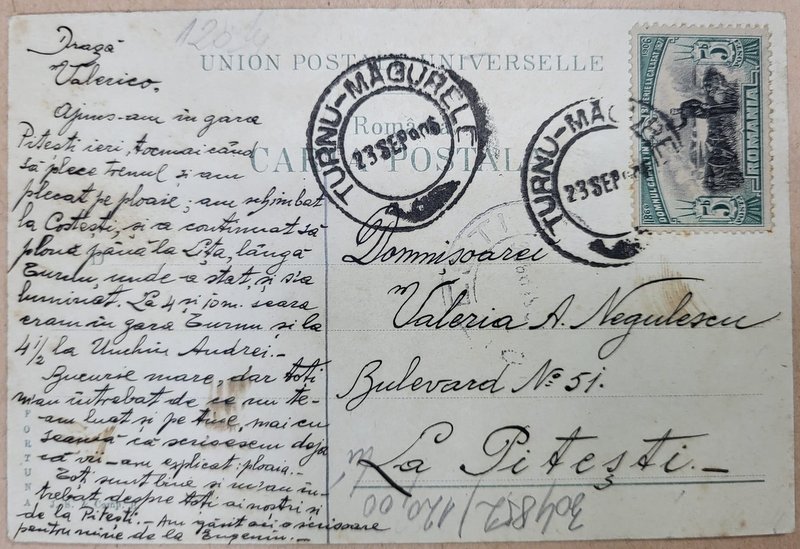 Dragă
Valerico,
Ajuns-am în gara
Pitești ieri, tocmai când
să plece trenul și am
plecat pe ploaie; am schimbat
la Costești, și a continuat să
plouă până la lângă
Turnu, unde a stat și s'a
luminat. La 4 și seara
eram în gara Turnu, și la
4 1/2 la Unchiu Andrei.-
Bucurie mare, dar toți
m'au întrebat de ce nu te-
am luat și pe tine, mai cu
seamă că scrisesem deja
că v-am explicat ploaia.-
Toți sunt bine și m'au în-
trebat despre toți ai noștri și
de la Pitești.- Am găsit aci o scrisoare
pentru mine de la Eugeniu.-
UNION POSTALE UNIVERSELLE
România
CARTA POSTALA
TURNU-MĂGURELE
23 SEP 906
TURNU-MĂGURELE
23 SEP
1806 1906
5 BANI 5
ROMANIA
Domnisoarei
Valeria A. Negulescu
Bulevard No 51.
La Pitești.-
304812/120,00
FORTUNA